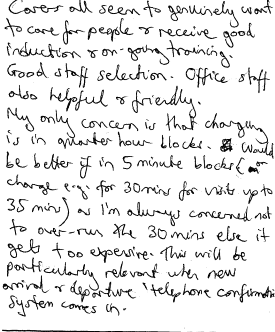 Carers all seem to genuinely want
to care for people & receive good
induction & on-going training.
Good staff selection. Office staff
also helpful & friendly.
My only concern is that charging
is in quarter hour blocks. Would
be better if in 5 minute blocks (or
charge e.g. for 30 mins for visits up to
35 mins) as I'm always concerned not
to over-run the 30 mins else it
gets too expensive. This will be
particularly relevant when new
arrival & departure 'telephone confirmation
system comes in.